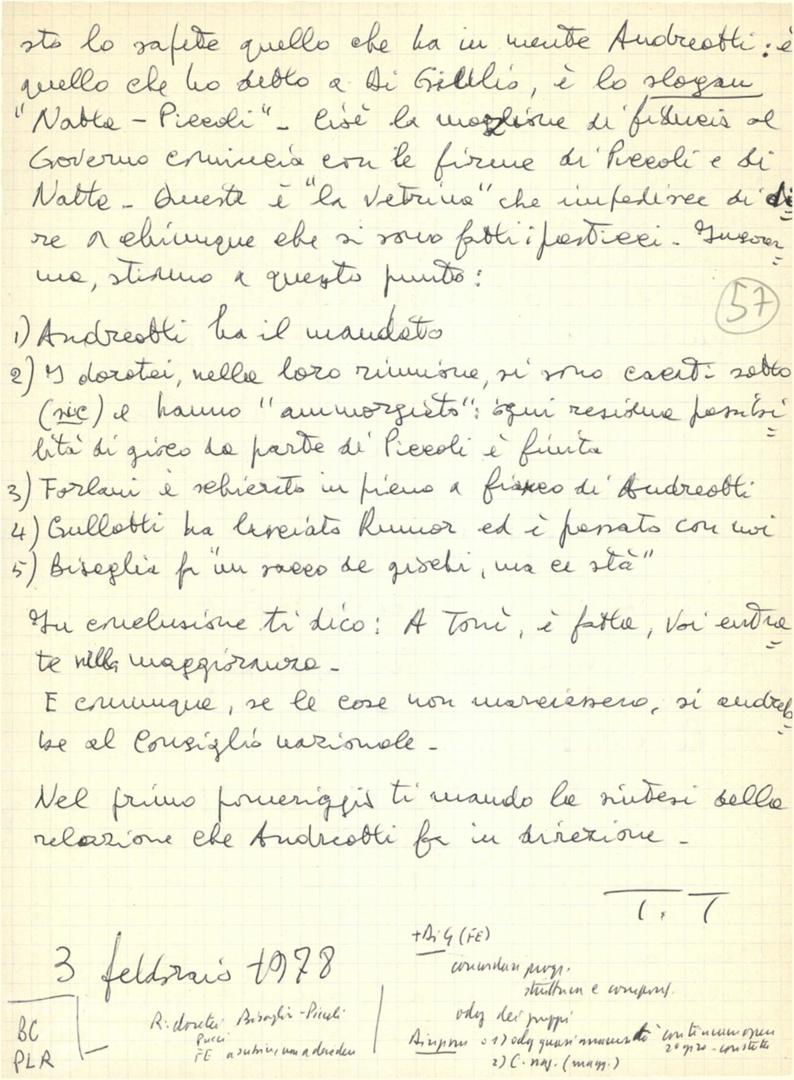 sto lo sapete quello che ha in mente Andreotti: è
quello che ho detto a Di Giulio, è lo slogan
"Natta - Piccoli". Cioè la mozione di fiducia al
Governo comincia con le firme di Piccoli e di
Natta. Questa è "la vetrina" che impedisce di di
re a chiunque che si sono fatti i pasticci. Insom
ma, stiamo a questo punto:
57
1) Andreotti ha il mandato
2) I dorotei, nella loro riunione, si sono cacati sotto
(sic) e hanno "ammorgiato": ogni residua possibi
lità di gioco da parte di Piccoli è finita
3) Forlani è schierato in pieno a fianco di Andreotti
4) Gullotti ha lasciato Rumor ed è passato con noi
5) Bisaglia fa "un sacco de giochi, ma ce stà"
In conclusione ti dico: A Tonì, è fatta, voi entra
te nella maggioranza.
E comunque, se le cose non marciassero, si andreb
be al Consiglio nazionale.
Nel primo pomeriggio ti mando la sintesi della
relazione che Andreotti fa in direzione.
T. T
3 febbraio 1978
BC
PLR
R: dorotei Bisaglia-Piccoli
Pucci
FE
+Di G (FE)
concordan progr.
struttura e compos.
odg dei gruppi
1) odg quasi
2) C. naz. (magg.)